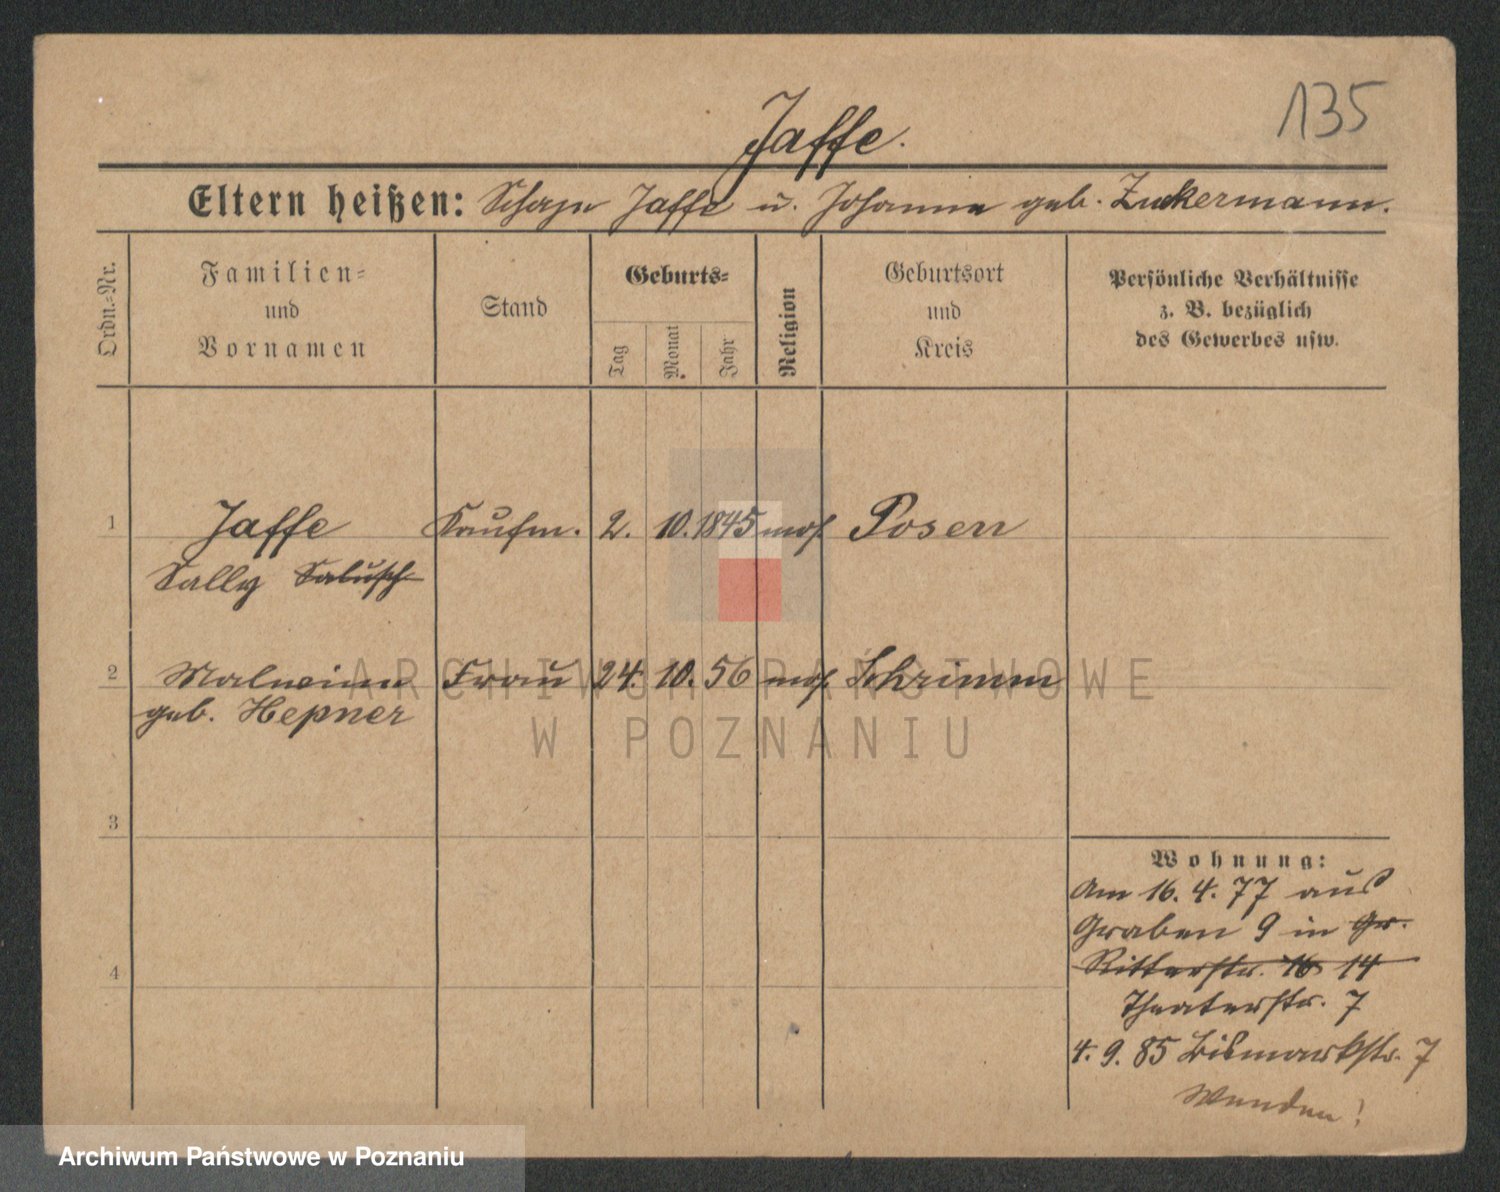 135
Jaffe.
Eltern heißen: Schaje Jaffe u. Johanna geb. Zuckermann.
Ordn.-Nr.
Familien-
und
Vornamen
Stand
Geburts-
Tag
Monat
Jahr
Religion
Geburtsort
und
Kreis
Persönliche Verhältnisse
z. B. bezüglich
des Gewerbes usw.
1 Jaffe Kaufm. 2. 10. 1845 mos. Posen
Sally
2 Malwine Frau 24. 10. 56 mos. Schrimm
geb. Hepner
3
4
Wohnung:
Am 16. 4. 77 aus
Graben 9 in Gr.
Ritterstr. 16 14
Theaterstr. 7
4. 9. 85 Bismarkstr. 7
Wenden!
ARCHIWUM PAŃSTWOWE
W POZNANIU
Archiwum Państwowe w Poznaniu